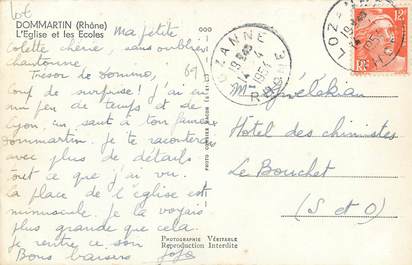 Lot
DOMMARTIN (Rhône)
L'Eglise et les Ecoles
Ma petite
Colette chérie, sans oublier
Chantonne,
Trésor de Domino,
69
Coup de surprise ! j'ai eu
un peu de temps et de
Lyon, un saut à ton fameux
Dommartin. Je te raconterai
avec plus de détails
tout ce que j'ai vu.
La place de l'église est
minuscule. Je la voyais
plus grande que cela.
Je rentre ce soir
Bons baisers
PHOTO COMBIER MACON
LOZANNE
14-4
1954
RHONE
LOZANNE
1954
12F
RF
M.
Hotel des chimistes
Le Bouchet
(S et O)
PHOTOGRAPHIE VÉRITABLE
Reproduction Interdite